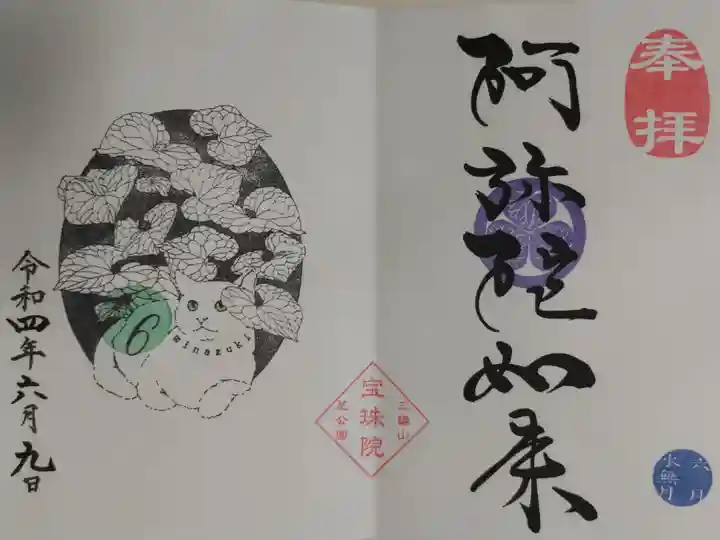 奉拝
阿弥陀如来
六月
水無月
三緑山
宝珠院
芝公園
6
minazuki
令和四年六月九日